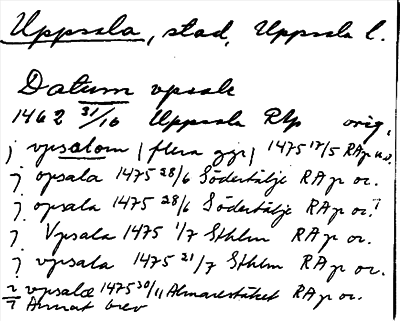 Uppsala, stad, Uppsala l.
Datum vpsale
1462 31/10 Uppsala RAp orig.
j vpsalom (flera ggr) 1475 17/5 RAp
j opsala 1475 28/6 Södertälje RAp or.
j opsala 1475 28/6 Södertälje RAp or.?
j Vpsala 1475 1/7 Sthlm RAp or.
j vpsala 1475 21/7 Sthlm RAp or.
vpsalæ 1475 30/11 Almarestäket RAp or.
Annat brev